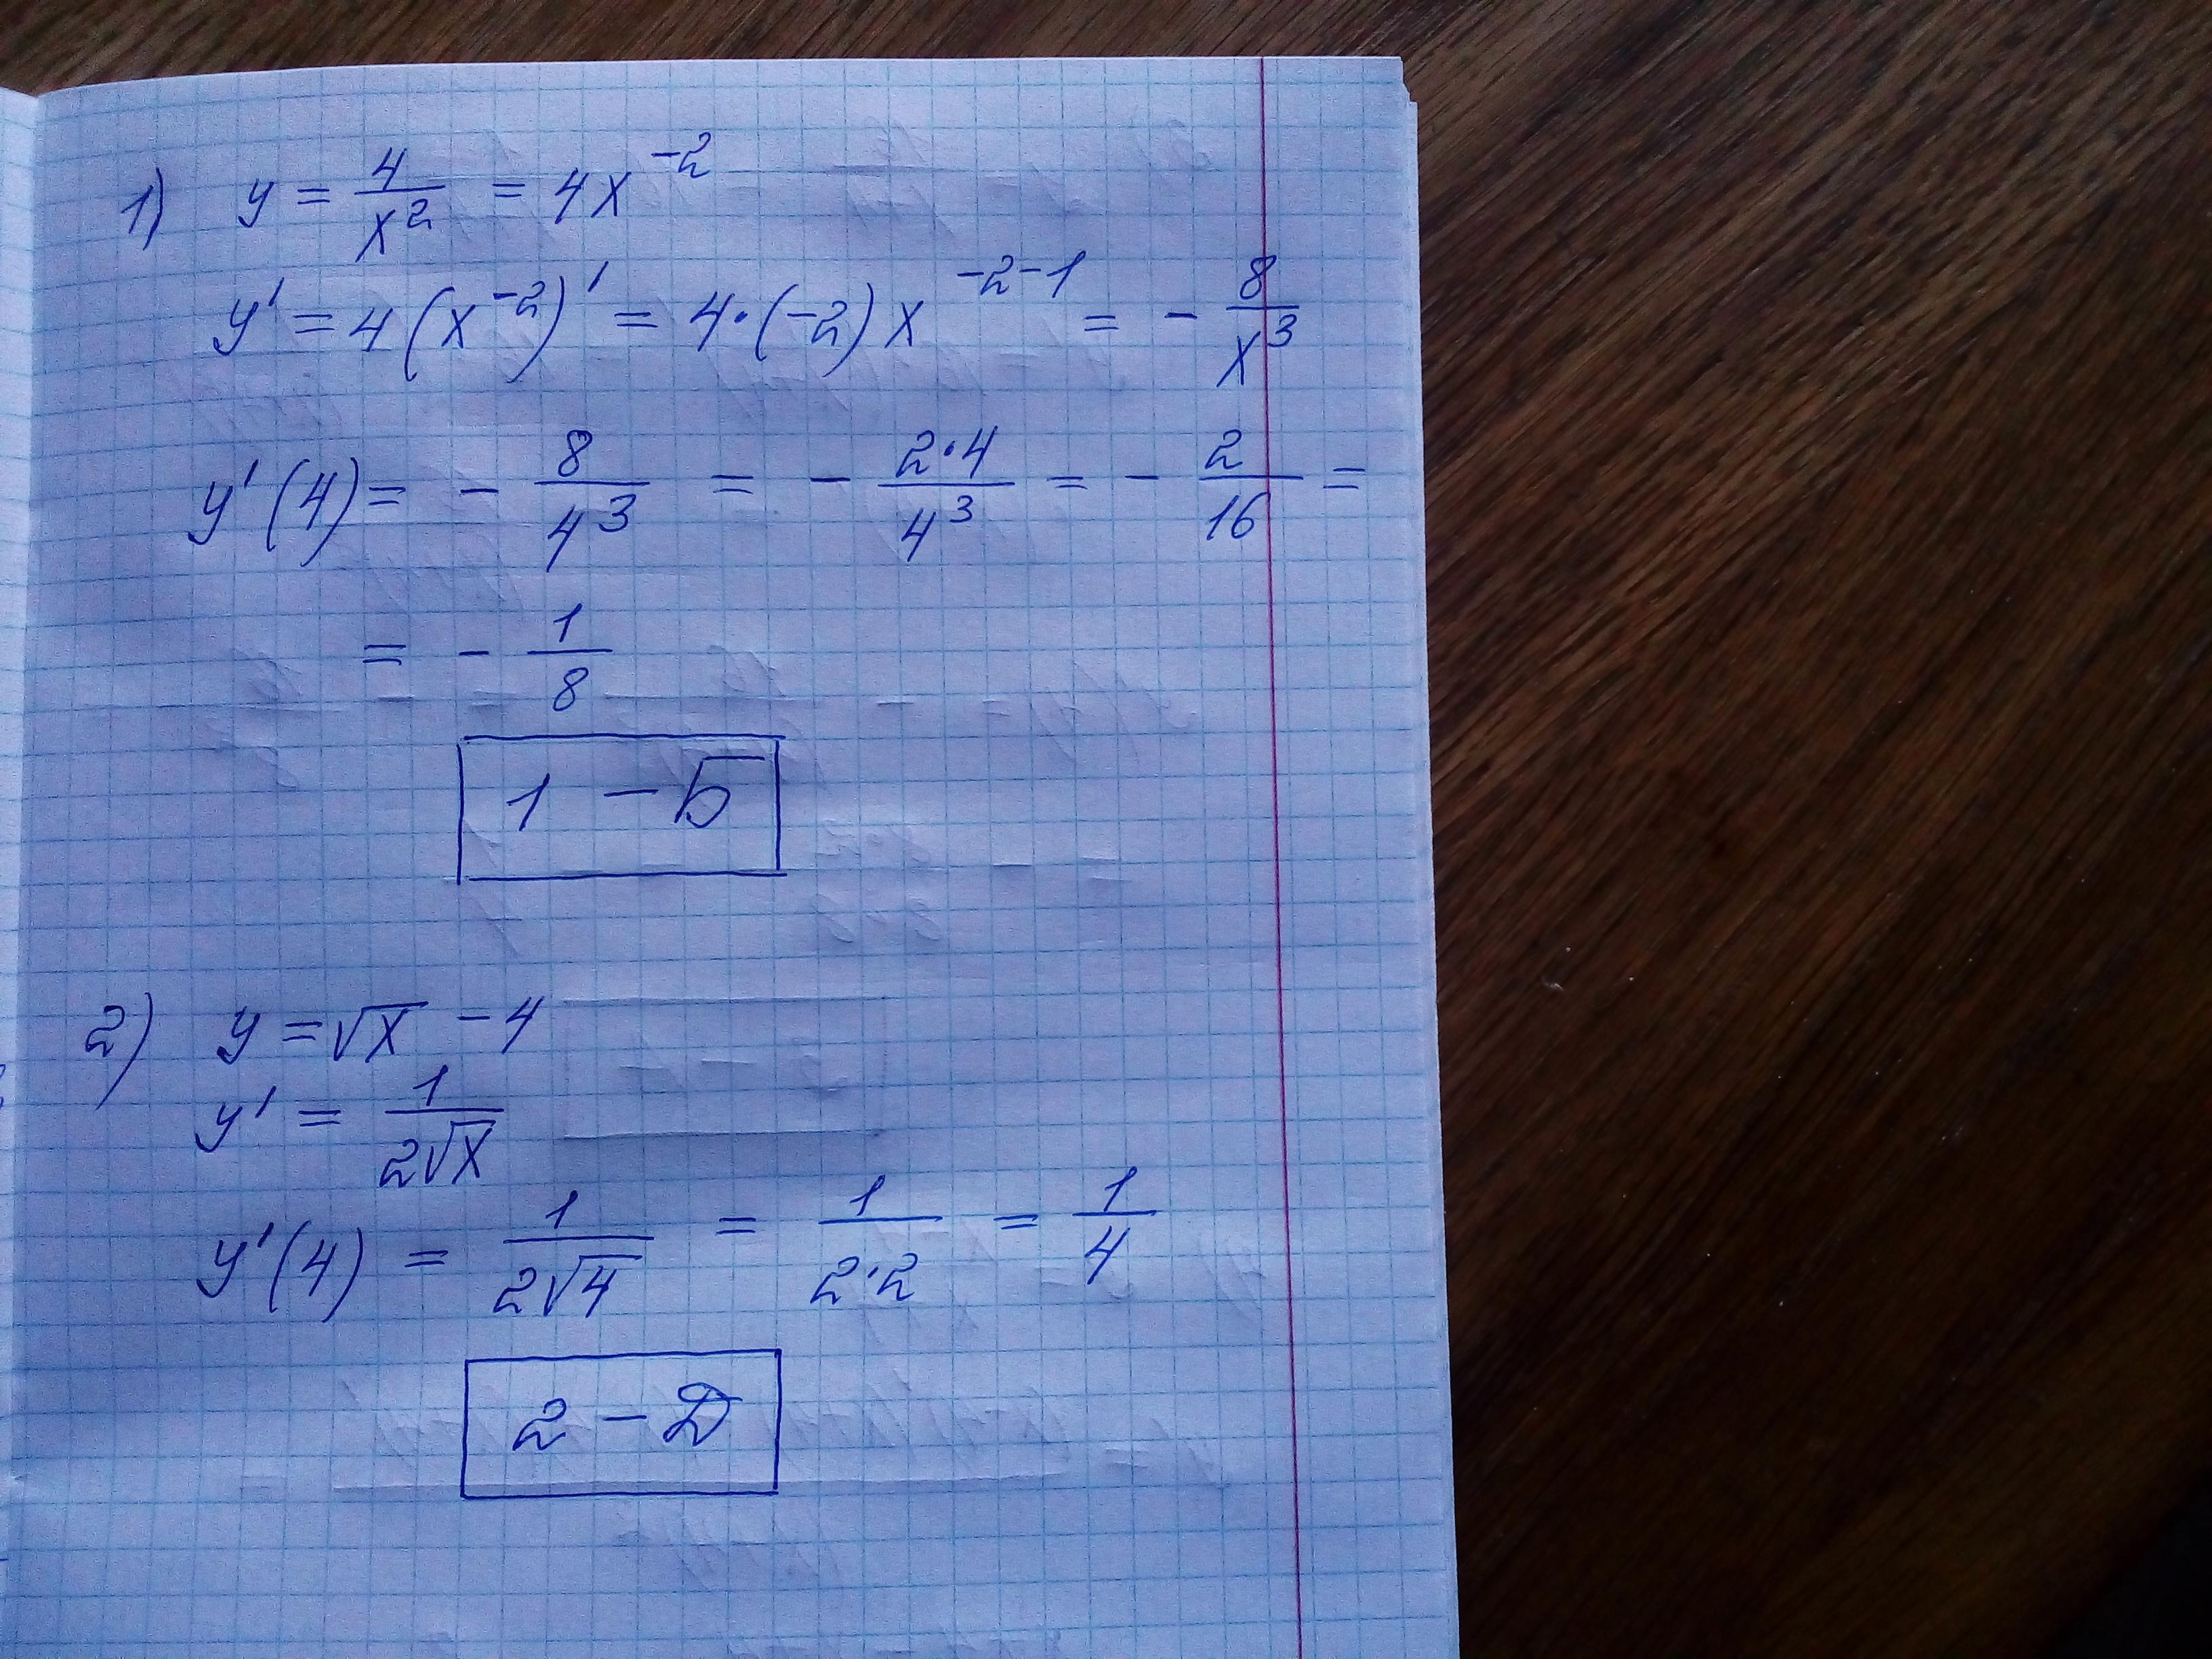 1) y = 4/x² = 4x⁻²
y' = 4(x⁻²)' = 4·(-2)x⁻²⁻¹ = - 8/x³
y'(4) = - 8/4³ = - 2·4/4³ = - 2/16 =
= - 1/8
1 - Б
2) y = √x - 4
y' = 1/2√x
y'(4) = 1/2√4 = 1/2·2 = 1/4
2 - Д